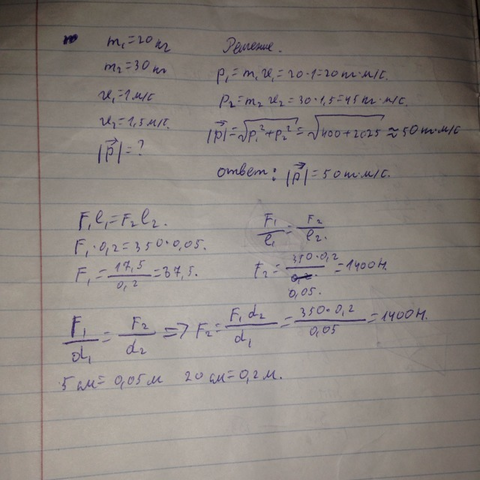 m₁=20кг
m₂=30кг
υ₁=1м/с
υ₂=1,5м/с.
|p⃗|=?
Решение.
p₁=m₁υ₁=20·1=20кг·м/с.
p₂=m₂υ₂=30·1,5=45кг·м/с.
|p⃗|=√(p₁²+p₂²)=√(400+2025)≈50кг·м/с
ответ: |p⃗|=50кг·м/с.
F₁ℓ₁=F₂ℓ₂.
F₁·0,2=350·0,05.
F₁=17,5/0,2=37,5.
F₁/ℓ₁=F₂/ℓ₂.
F₂=350·0,2/0,05.=1400Н.
F₁/d₁=F₂/d₂=>F₂=F₁d₂/d₁=350·0,2/0,05=1400Н.
5см=0,05м 20см=0,2м.